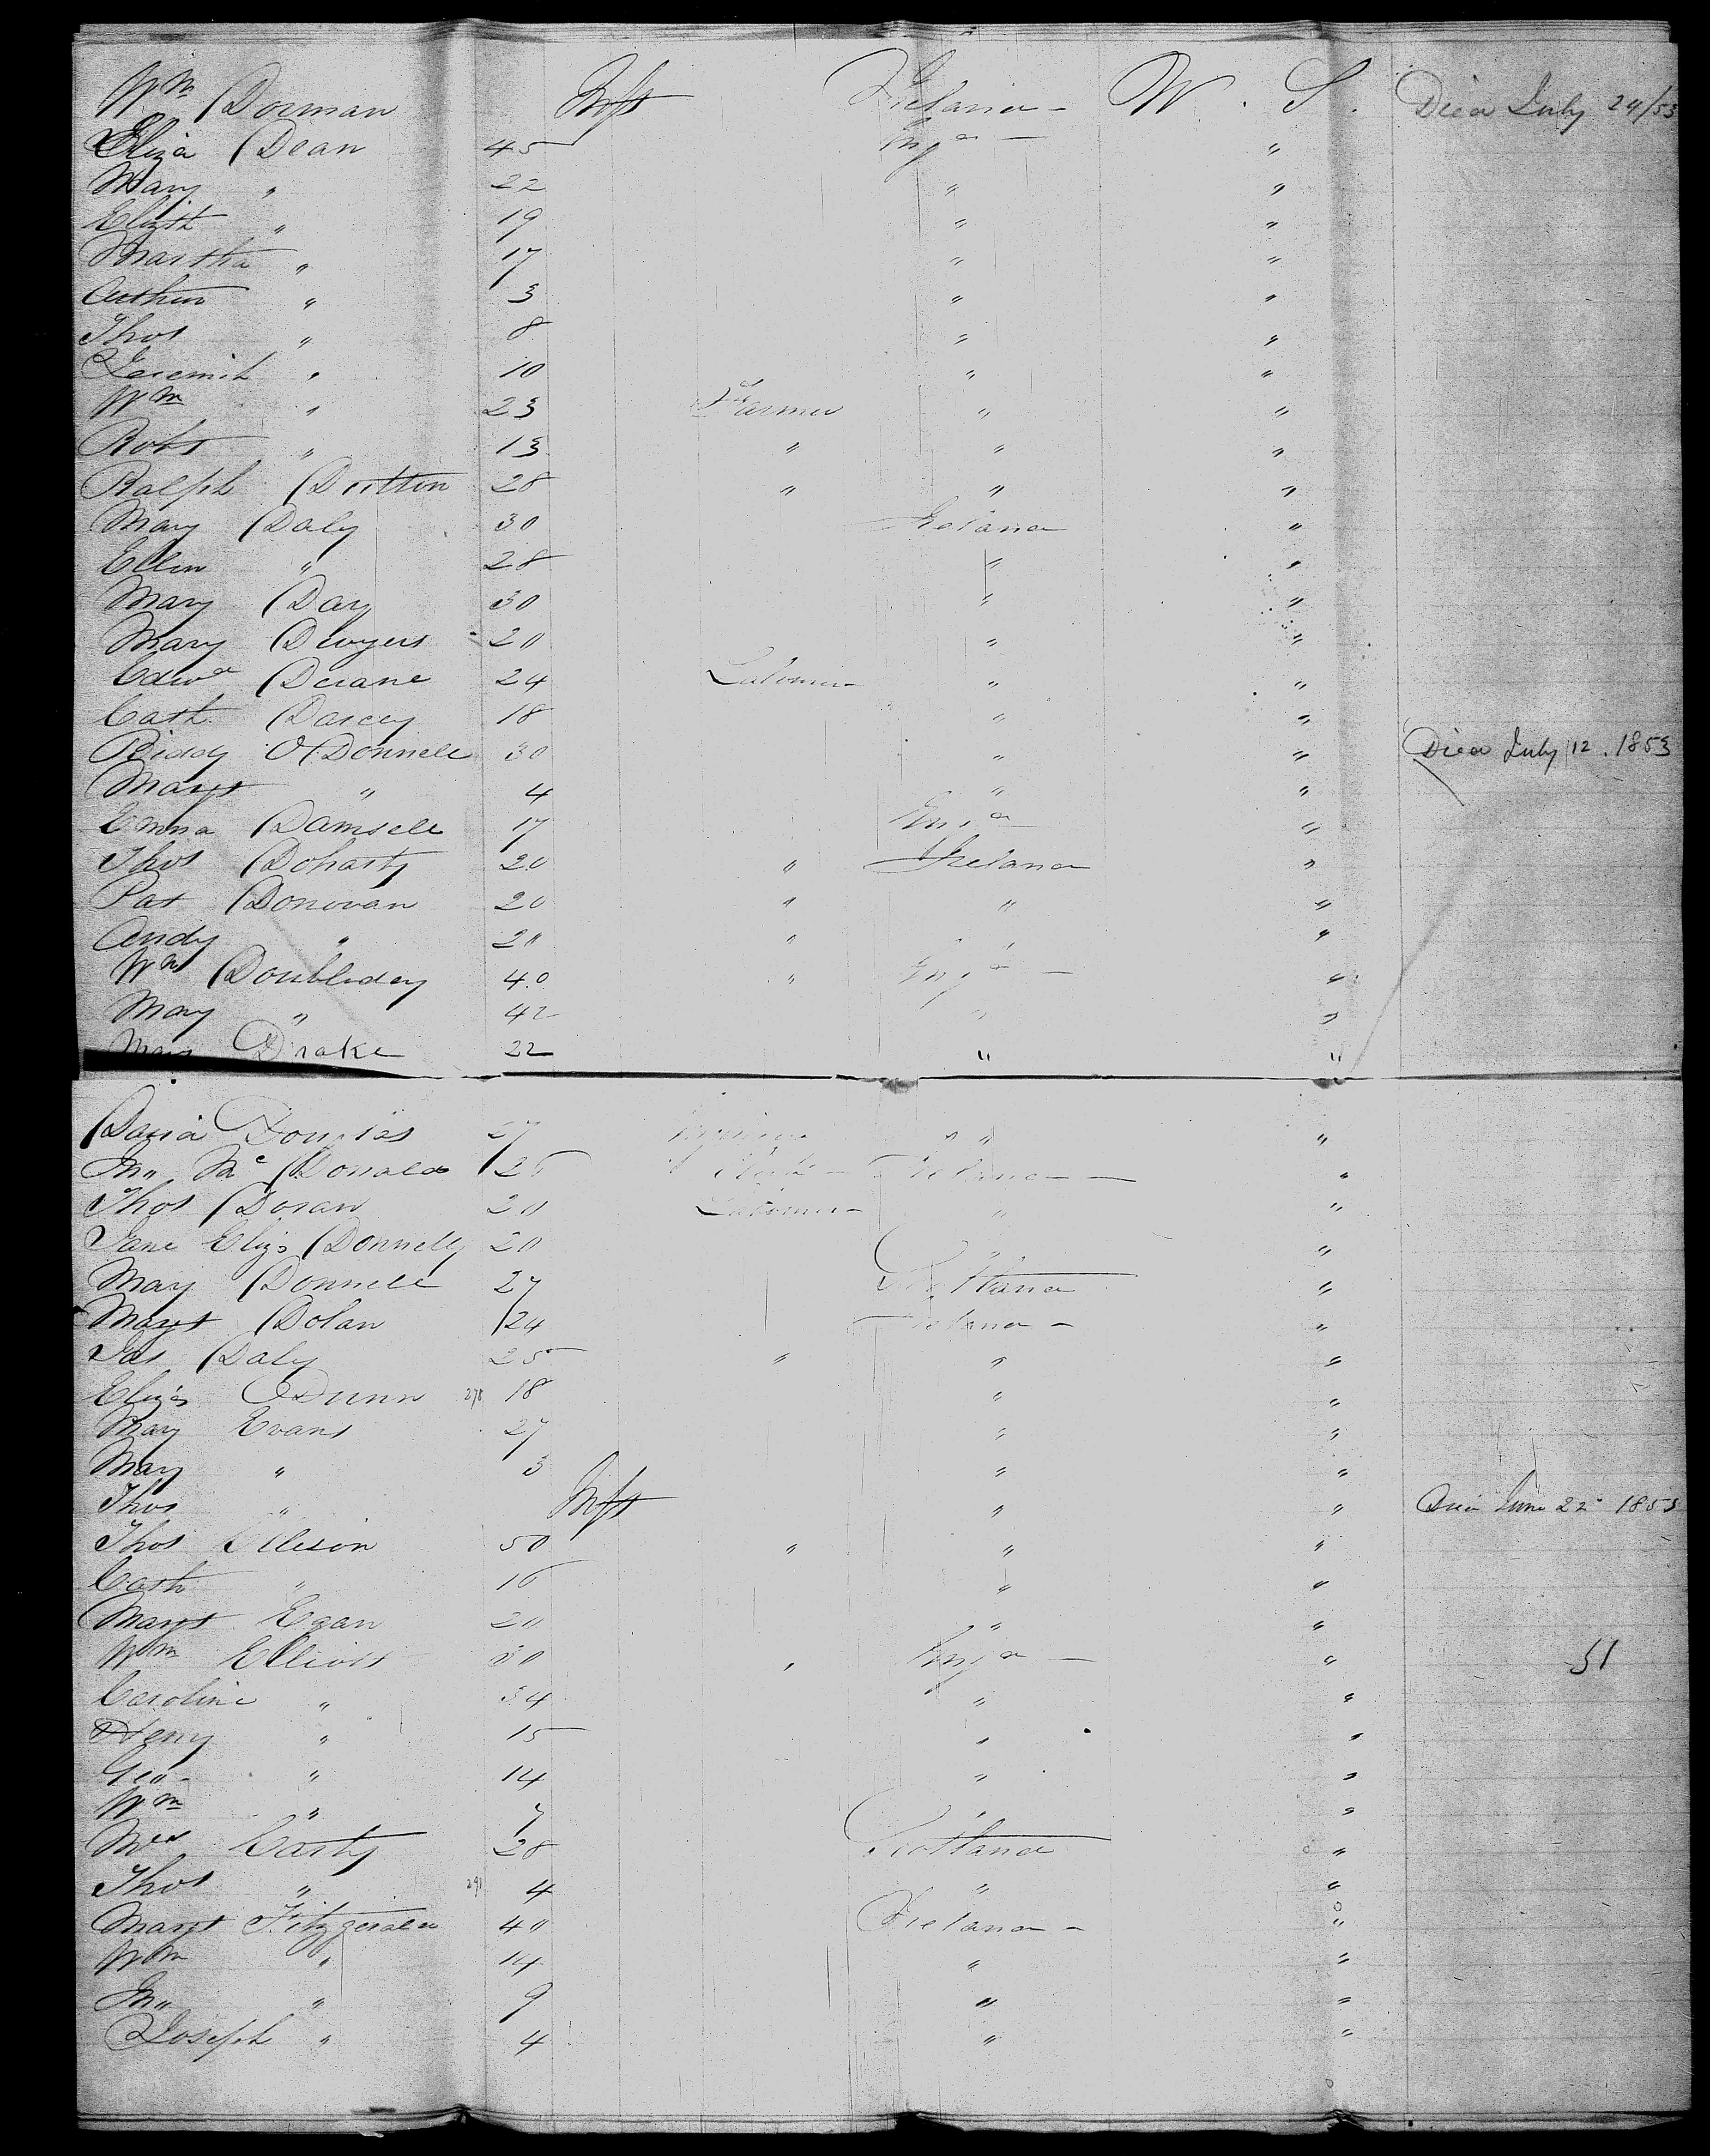 Wm Dorman Inft Ireland - U. S. Died July 24/53
Eliza Dean 45 Engd - "
Mary " 22 " "
Elizth " 19 " "
Martha " 17 " "
Arthur " 3 " "
Thos " 8 " "
Jeremih " 10 " "
Wm " 23 Farmer " "
Robt " 13 " " "
Ralph Dutton 28 " " "
Mary Daly 30 Ireland "
Ellen " 28 " "
Mary Day 30 " "
Mary Dwyers 20 " "
Edwd 24 Labourer " "
Cath Darcey 18 " "
Biddy O'Donnell 30 " " Died July 12. 1853
Margt " 4 " "
Emma Damsell 17 Engd "
Thos Doharty 20 " Ireland "
Pat Donovan 20 " " "
Andy " 20 " " "
Wm Doubleday 40 " Engd - "
Mary " 42 " "
Drake 22 " "
David Douglas 27 " "
Jno Mc Donald 26 Ireland - "
Thos Doran 20 Labourer - " "
Jane Eliza Donnelly 20 " "
Mary Donnell 27 Scotland "
Margt Dolan 24 Ireland - "
Jas Daly 25 " " "
Eliza Dunn 278 18 " "
Mary Evans 27 " "
Mary " 3 " "
Thos " Inft " " Died June 22 1853
Thos 50 " " "
Cath " 16 " "
Margt Egan 20 " "
Wm Elliott 30 " Engd - " 51
Caroline " 34 " "
Henry " 15 " "
Geo - " 14 " "
Wm " 7 " "
Mrs 28 Scotland "
Thos " 291 4 " "
Margt Fitzgerald 40 Ireland - "
Wm " 14 " "
Jno " 9 " "
Joseph " 4 " "